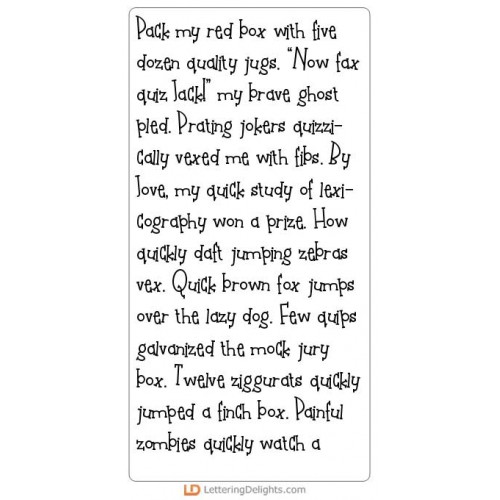 Pack my red box with five
dozen quality jugs. "Now fax
quiz Jack!" my brave ghost
pled. Prating jokers quizzi-
cally vexed me with fibs. By
Jove, my quick study of lexi-
cography won a prize. How
quickly daft jumping zebras
vex. Quick brown fox jumps
over the lazy dog. Few quips
galvanized the mock jury
box. Twelve ziggurats quickly
jumped a finch box. Painful
zombies quickly watch a
LD LetteringDelights.com